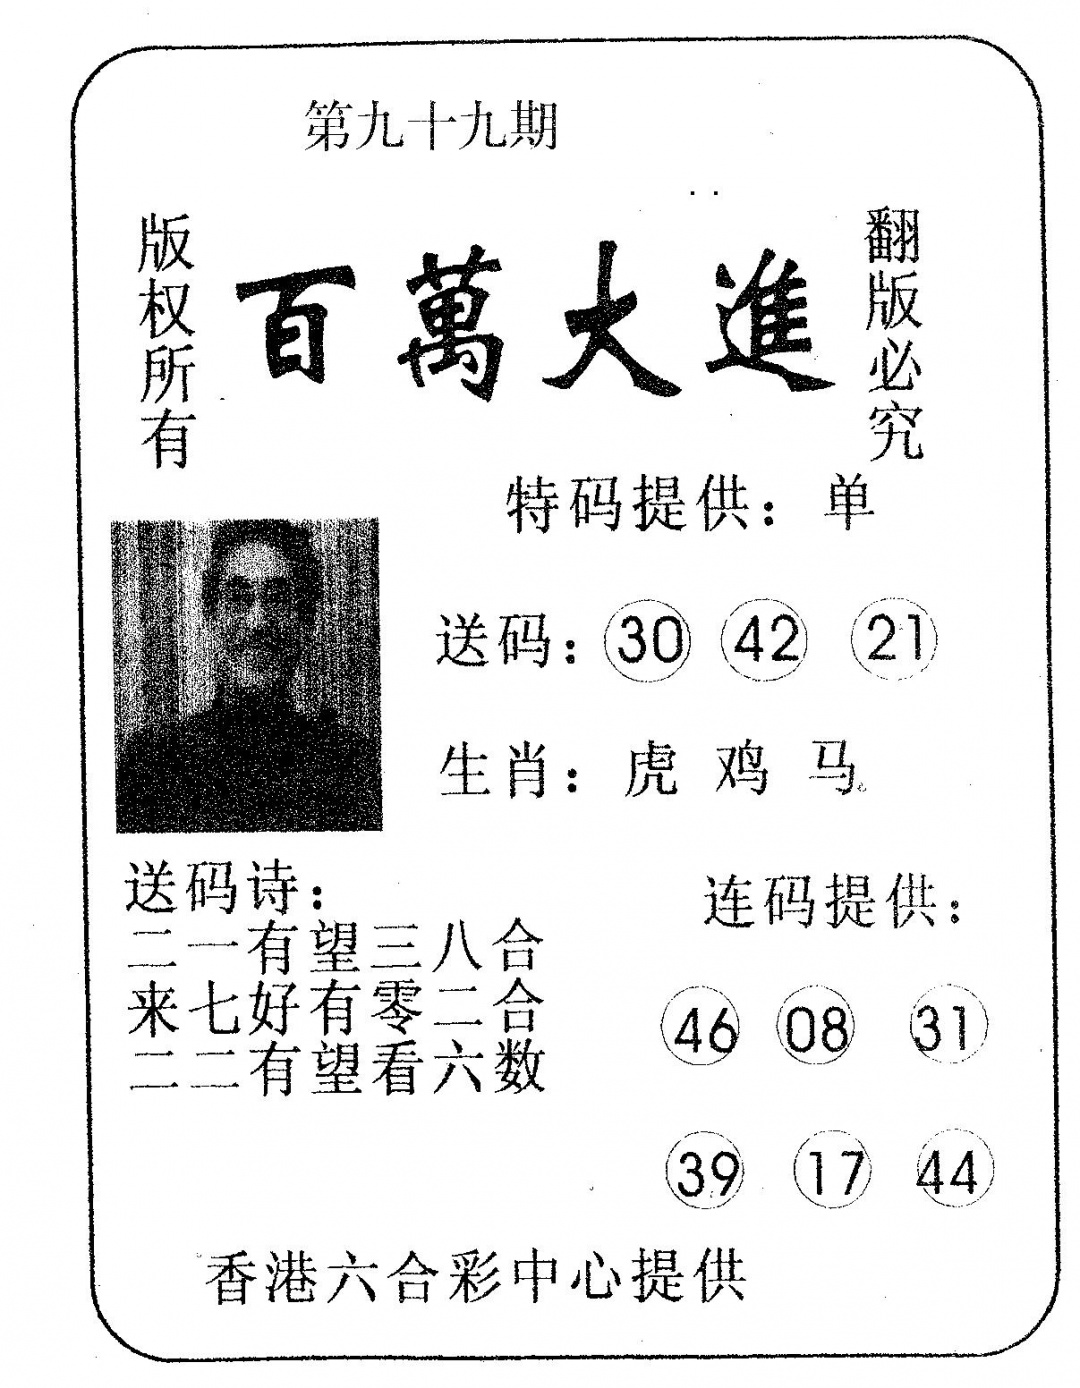 第九十九期
版权所有
百萬大進
翻版必究
特码提供：单
送码：30 42 21
生肖：虎 鸡 马
送码诗：
二一有望三八合
来七好有零二合
二二有望看六数
连码提供：
46 08 31
39 17 44
香港六合彩中心提供